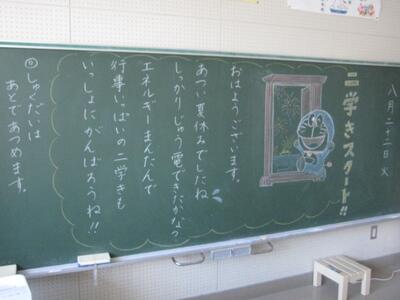 八月二十二日 火
二学きスタート!!
おはようございます。
あつい夏休みでしたね
しっかりじゅう電できたかな?
エネルギーまんたんで
行事いっぱいの二学きも
いっしょにがんばろうね!!
◎しゅくだいは
あとであつめます。